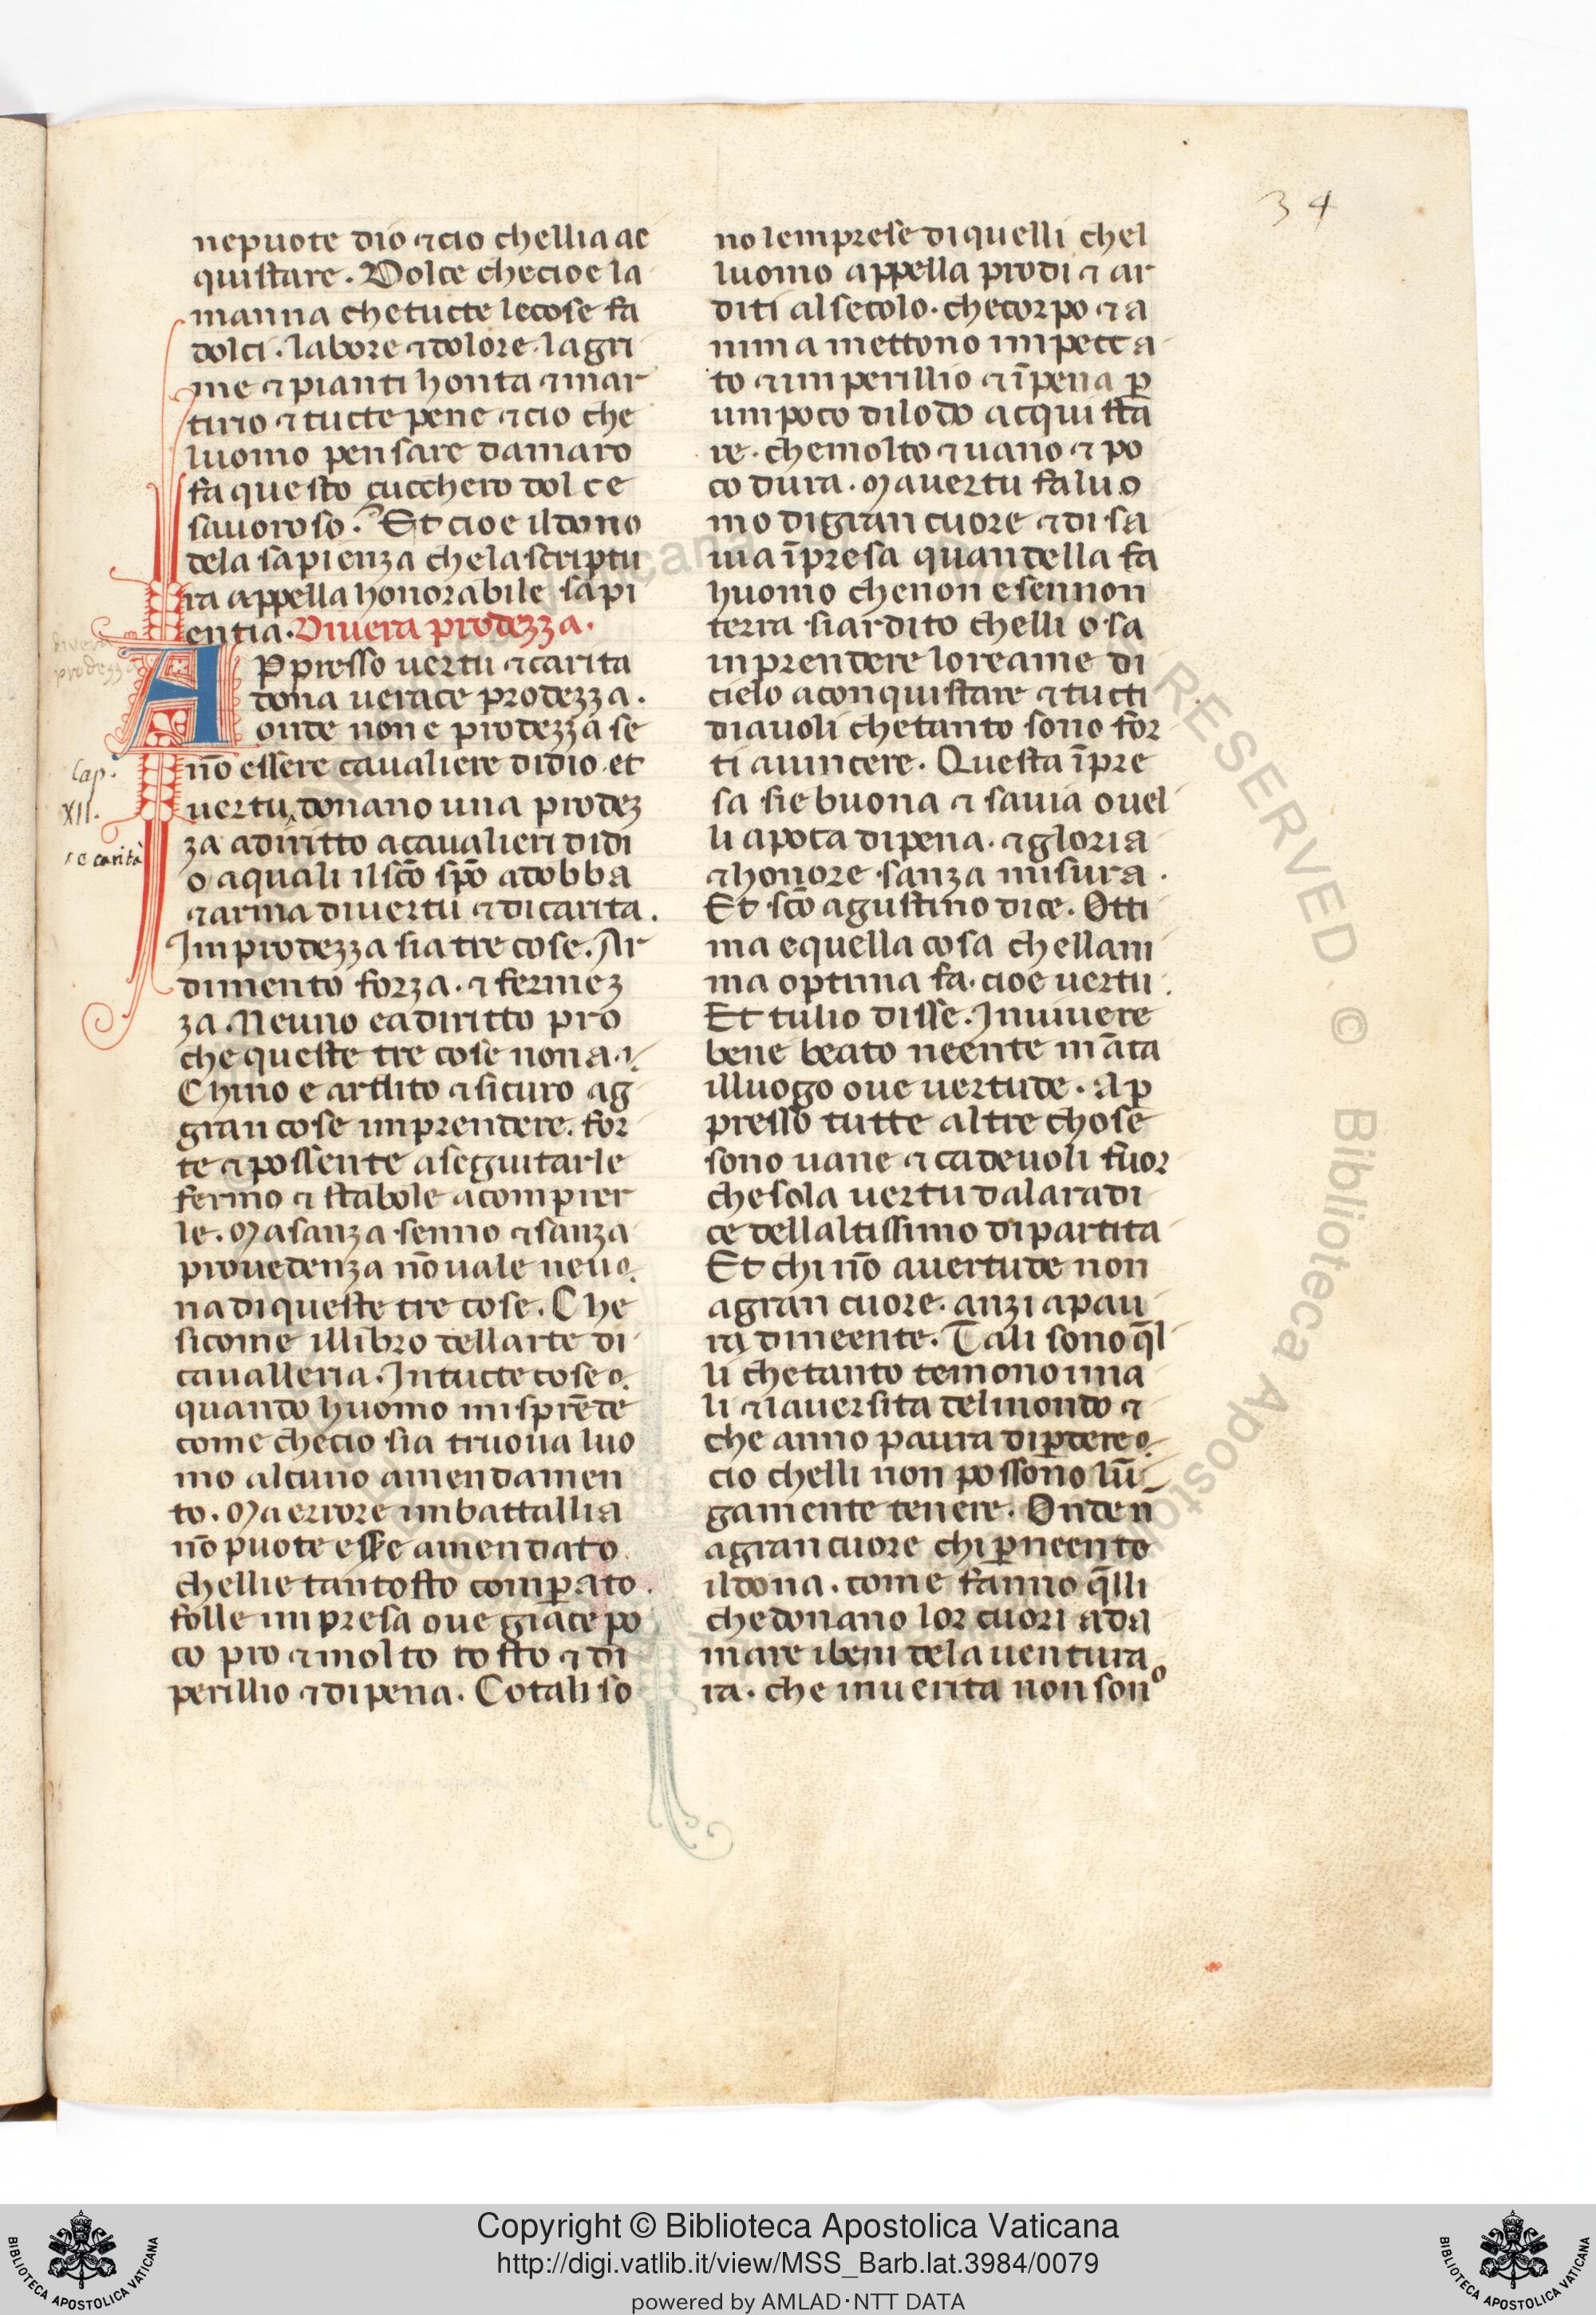 34
nepuote dio ⁊cio chellia ac
quistare. Dolce checioe la
manna chetucte lecose fa
dolci. labore ⁊dolore. lagri
me ⁊ pianti honta ⁊mar
tirio ⁊ tucte pene ⁊cio che
luomo pensare damaro
fa questo çucchero dolce
sauoroso. Et cioe ildono
dela sapienza chelascriptu
ra appella honorabile sapi
entia. Diuera prodezza.
APpresso uertu ⁊carita
dona uerace prodezza.
onde non e prodezza se
nō essere caualiere didio. et
uertu donano una prodez
za adiritto acaualieri didi
o aquali ilscō spō adobba
⁊arma diuertu ⁊dicarita.
Improdezza sia tre cose. Ar
dimento forza. ⁊ fermez
za. Neuno eadiritto pro
che queste tre cose non a.
Chino e ardito ⁊sicuro ag
gran cose imprendere. for
te ⁊possente aseguitarle
fermo ⁊ stabole acompier
le. Masanza senno ⁊sanza
prouedenza nōuale neuo
na di queste tre cose. Che
sicome illibro dellarte di
caualleria. Intucte cose
quando huomo misprēde
come checio sia truoua luo
mo alcuno amendamen
to. Ma errore imbattallia
nō puote essere amendato
chellie tantosto comꝑato.
folle impresa oue giace po
co pro ⁊molto costo ⁊ di
perillio ⁊dipena. Cotali so
no lemprese diquelli chel
luomo appella prodi ⁊ ar
diti alsecolo. checorpo ⁊ a
nima mettono impecca
to ⁊imperillio ⁊ īpena ꝑ
umpoco dilodo acquista
re. chemolto ⁊uano ⁊ po
co dura. Mauertu faluo
mo digran cuore ⁊di sa
uia īpresa quandella fa
huomo chenon e sennon
terra siardito chelli osa
inprendere loreame di
cielo aconquistare ⁊tucti
diauoli chetanto sono for
ti auincere. Questa īpre
sa sie buona ⁊ sauia ouel
li apoca dipena. ⁊gloria
⁊honore sanza misura.
Et scō agustino dice. Otti
ma equella cosa chellani
ma optima fa. cioe uertu.
Et tulio disse. Inuiuere
bene beato neente māca
illuogo oue uertude. Ap
presso tutte altre chose
sono uane ⁊ cadeuoli fuor
chesola uertu dalaradi
ce dellaltissimo dipartita
Et chi nō auertude non
agran cuore. anzi apau
ra dineente. Tali sono q̄l
li chetanto temono ima
li ⁊lauersita delmondo ⁊
che anno paura diꝑdere
cio chelli non possono lū
gamente tenere. Onde n
agrancuore chi ꝑneente
ildona. come fanno q̄lli
chedonano lor cuori ada
mare ibeni dela uentura
ra. che inuerita non sono
diuera
prodezza
Cap.
XII.
carità
Copyright © Biblioteca Apostolica Vaticana
http://digi.vatlib.it/view/MSS_Barb.lat.3984/0079
powered by AMLAD·NTT DATA
BIBLIOTECA APOSTOLICA VATICANA
BIBLIOTECA APOSTOLICA VATICANA